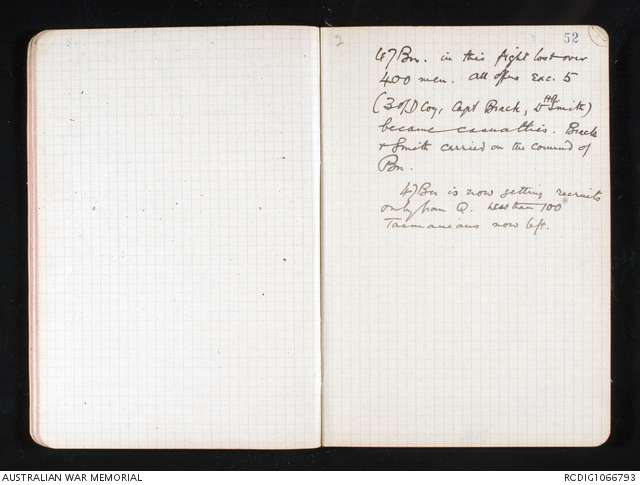 52
47 Bn. in this fight lost over
400 men. All offrs exc. 5
(3 of D Coy, Capt Brack, Dr Smith)
HQ
became casualties. Brack
& Smith carried on the comand of
Bn.
47 Bn is now getting recruits
only from Q. Less than 100
Tasmaneans now left.
AUSTRALIAN WAR MEMORIAL
RCDIG1066793